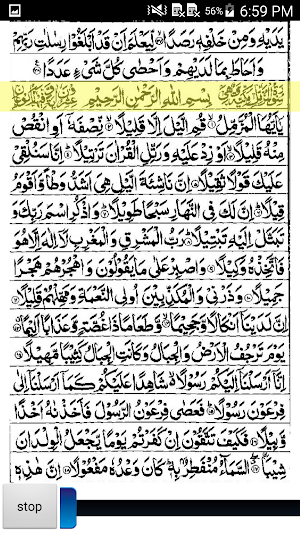 56% 6:59 PM
يَدَيْهِ وَمِنْ خَلْفِهٖ رَصَدًا لِّيَعْلَمَ اَنْ قَدْ اَبْلَغُوْا رِسٰلٰتِ رَبِّهِمْ
وَاَحَاطَ بِمَا لَدَيْهِمْ وَاَحْصٰى كُلَّ شَىْءٍ عَدَدًا
بِسْمِ اللّٰهِ الرَّحْمٰنِ الرَّحِيْمِ
يٰۤاَيُّهَا الْمُزَّمِّلُ قُمِ الَّيْلَ اِلَّا قَلِيْلًا نِّصْفَهٗۤ اَوِ انْقُصْ
مِنْهُ قَلِيْلًا اَوْ زِدْ عَلَيْهِ وَرَتِّلِ الْقُرْاٰنَ تَرْتِيْلًا اِنَّا سَنُلْقِىْ
عَلَيْكَ قَوْلًا ثَقِيْلًا اِنَّ نَاشِئَةَ الَّيْلِ هِىَ اَشَدُّ وَطْاً وَّاَقْوَمُ
قِيْلًا اِنَّ لَكَ فِى النَّهَارِ سَبْحًا طَوِيْلًا وَاذْكُرِ اسْمَ رَبِّكَ وَ
تَبَتَّلْ اِلَيْهِ تَبْتِيْلًا رَبُّ الْمَشْرِقِ وَالْمَغْرِبِ لَاۤ اِلٰهَ اِلَّا هُوَ
فَاتَّخِذْهُ وَكِيْلًا وَاصْبِرْ عَلٰى مَا يَقُوْلُوْنَ وَاهْجُرْهُمْ هَجْرًا
جَمِيْلًا وَذَرْنِىْ وَالْمُكَذِّبِيْنَ اُولِى النَّعْمَةِ وَمَهِّلْهُمْ قَلِيْلًا
اِنَّ لَدَيْنَاۤ اَنْكَالًا وَّجَحِيْمًا وَّطَعَامًا ذَا غُصَّةٍ وَّعَذَابًا اَلِيْمًا
يَوْمَ تَرْجُفُ الْاَرْضُ وَالْجِبَالُ وَكَانَتِ الْجِبَالُ كَثِيْبًا مَّهِيْلًا
اِنَّاۤ اَرْسَلْنَاۤ اِلَيْكُمْ رَسُوْلًا شَاهِدًا عَلَيْكُمْ كَمَاۤ اَرْسَلْنَاۤ اِلٰى
فِرْعَوْنَ رَسُوْلًا فَعَصٰى فِرْعَوْنُ الرَّسُوْلَ فَاَخَذْنٰهُ اَخْذًا
وَّبِيْلًا فَكَيْفَ تَتَّقُوْنَ اِنْ كَفَرْتُمْ يَوْمًا يَّجْعَلُ الْوِلْدَانَ
شِيْبًا السَّمَآءُ مُنْفَطِرٌۢ بِهٖ كَانَ وَعْدُهٗ مَفْعُوْلًا اِنَّ هٰذِهٖ
stop